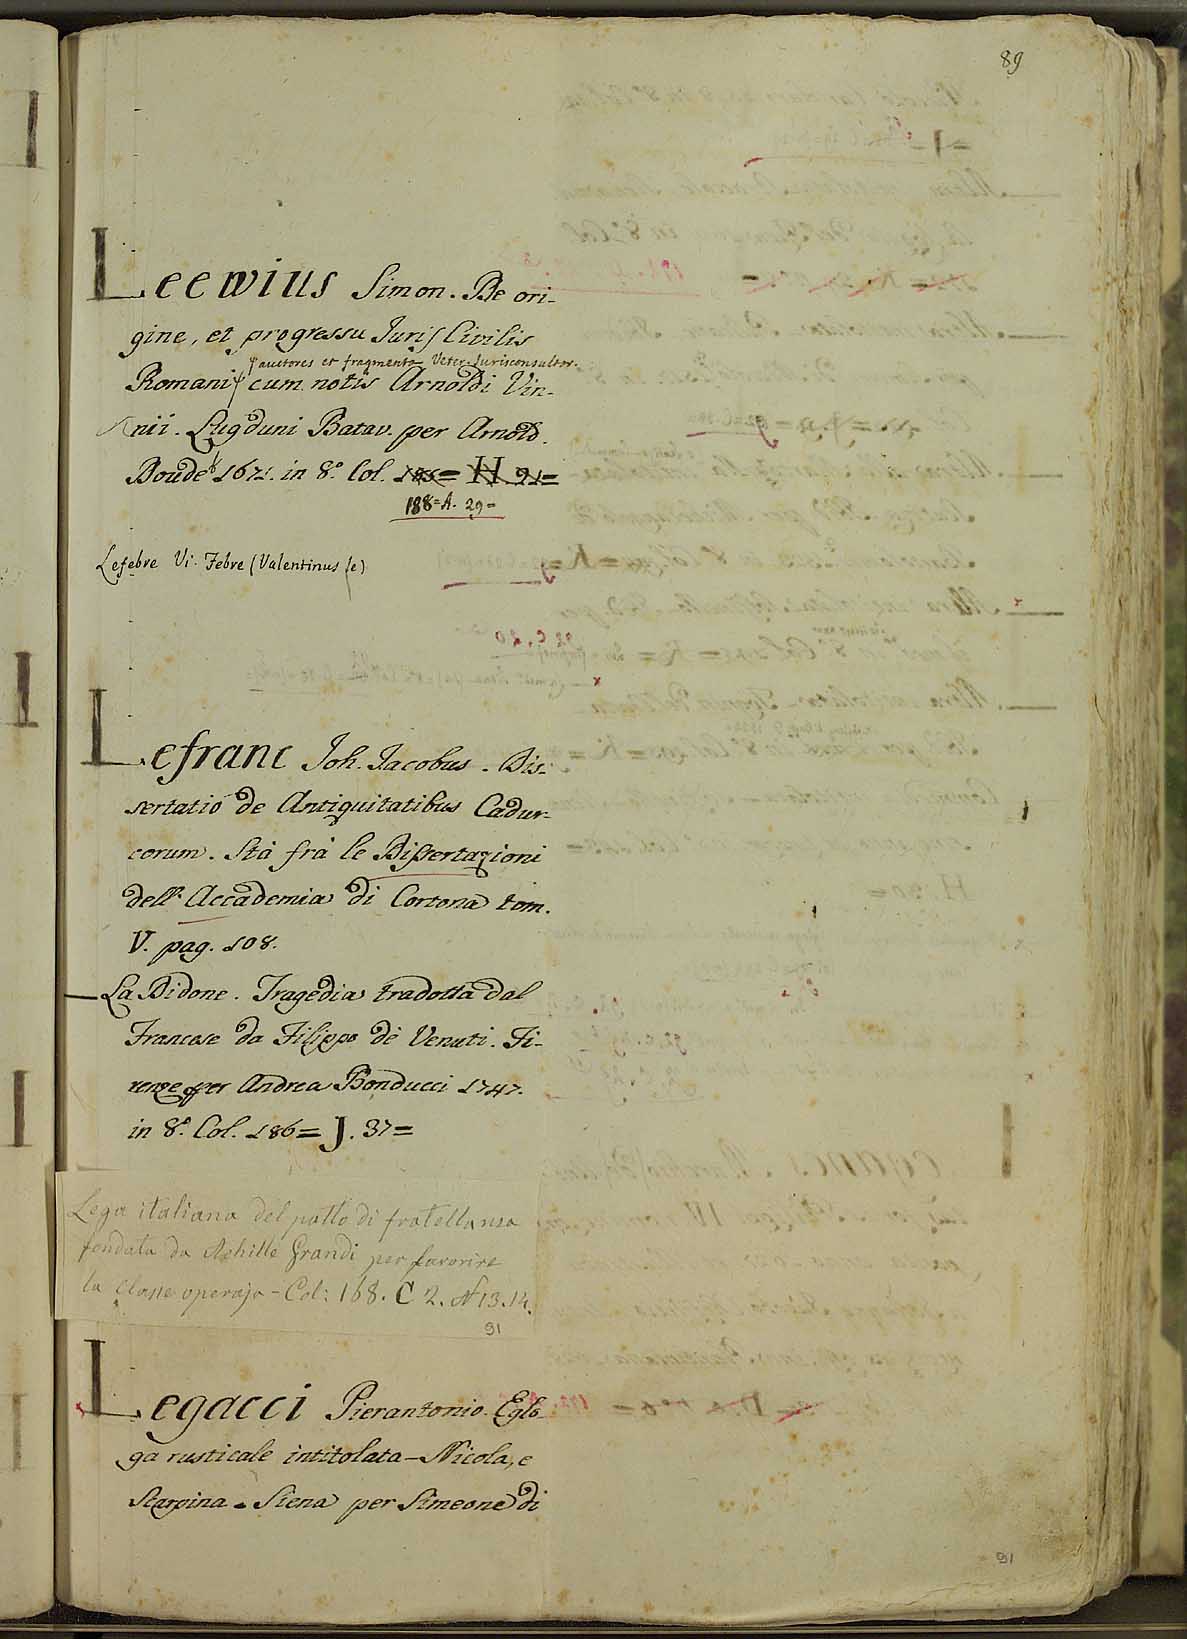 89
Leewius Simon. De ori-
gine, et progressu Juris Civilis
auctores et fragmenta Veter. Jurisconsultor.
Romani cum notis Arnoldi Vin-
nii. Lugduni Batav. per Arnold.
Doude 1671. in 8.º Col. 186= H. 91=
188=A. 29=
Lefebre Vi. Febre (Valentinus le)
Lefranc Joh. Jacobus. Dis-
sertatio de Antiquitatibus Cadur-
corum. Stà frà le Dissertazioni
dell' Accademia di Cortona tom.
V. pag. 108.
— La Didone. Tragedia tradotta dal
Francese da Filippo de Venuti. Fi-
renze per Andrea Bonducci 1747.
in 8.º Col. 186= J. 37=
Lega italiana del patto di fratellanza
fondata da Achille Grandi per favorire
la classe operaja - Col: 168. C 2. Nº 13.14.
91
Legacci Pierantonio. Eglo-
ga rusticale intitolata - Nicola, e
Scarpina. Siena per Simeone di
91